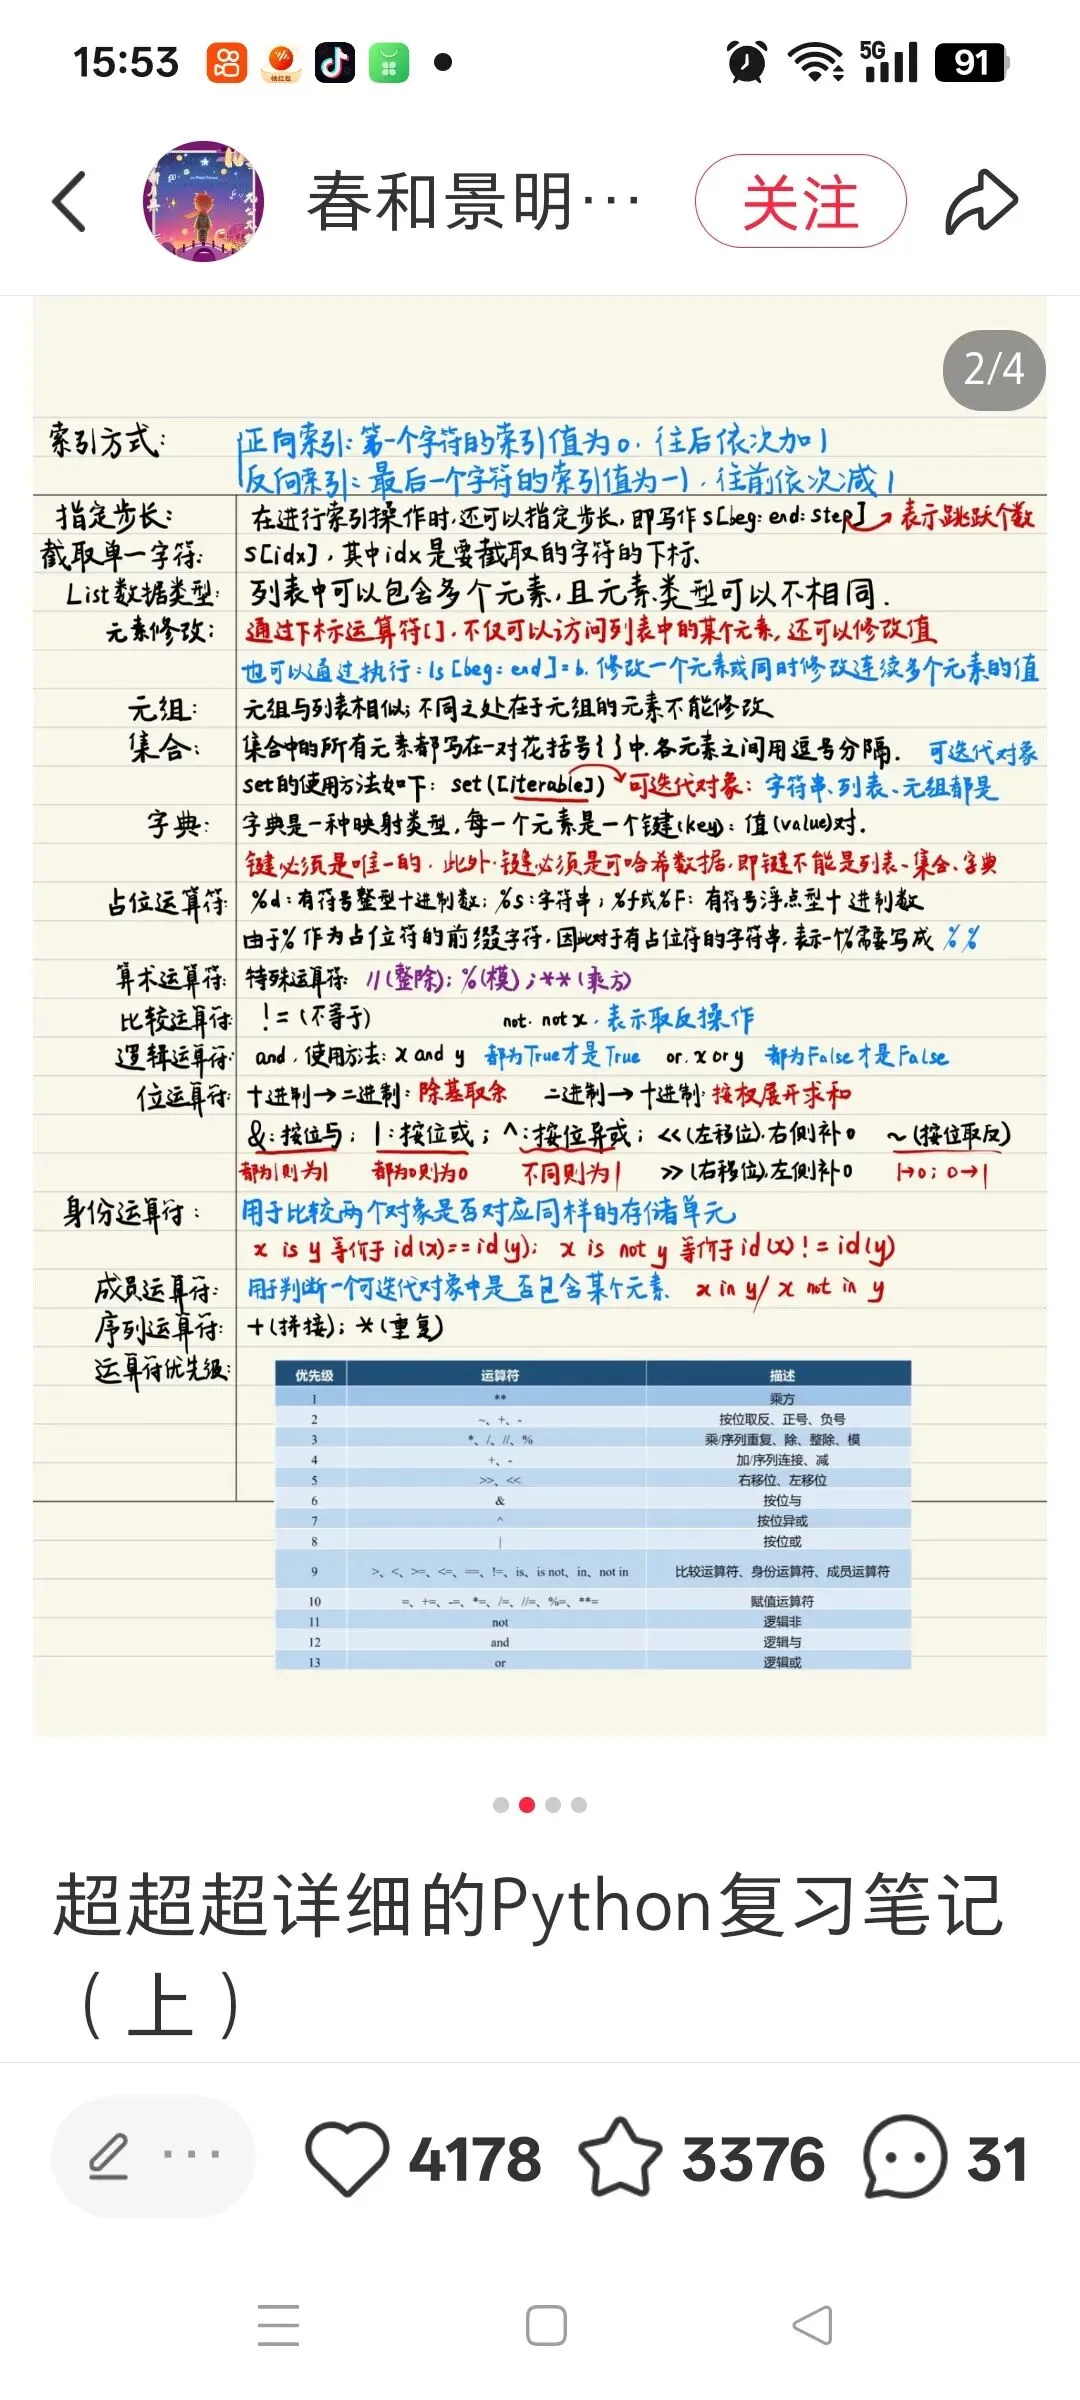 15:53
5G
91
春和景明…
关注
2/4
索引方式: 正向索引: 第一个字符的索引值为0. 往后依次加1
反向索引: 最后一个字符的索引值为-1, 往前依次减1
指定步长: 在进行索引操作时,还可以指定步长,即写作 s[beg: end: step] → 表示跳跃个数
截取单一字符: s[idx], 其中idx是要截取的字符的下标.
List数据类型: 列表中可以包含多个元素,且元素类型可以不相同.
元素修改: 通过下标运算符[], 不仅可以访问列表中的某个元素, 还可以修改值
也可以通过执行: ls[beg: end]=b. 修改一个元素或同时修改连续多个元素的值
元组: 元组与列表相似; 不同之处在于元组的元素不能修改
集合: 集合中的所有元素都写在一对花括号{}中.各元素之间用逗号分隔. 可迭代对象
set的使用方法如下: set([iterable]) 可迭代对象: 字符串、列表、元组都是
字典: 字典是一种映射类型,每一个元素是一个键(key): 值(value)对.
键必须是唯一的. 此外.键必须是可哈希数据,即键不能是列表、集合、字典
占位运算符 %d: 有符号整型十进制数; %s: 字符串; %f或%F: 有符号浮点型十进制数
由于%作为占位符的前缀字符, 因此对于有占位符的字符串,表示一个%需要写成 %%
算术运算符: 特殊运算符: //(整除); %(模); **(乘方)
比较运算符: != (不等于) not. not x. 表示取反操作
逻辑运算符: and. 使用方法: x and y 都为True才是True or. x or y 都为False才是False
位运算符: 十进制→二进制: 除基取余 二进制→十进制: 按权展开求和
&: 按位与; |: 按位或; ^: 按位异或; <<(左移位).右侧补0 ~(按位取反)
都为1则为1 都为0则为0 不同则为1 >>(右移位).左侧补0 1→0; 0→1
身份运算符: 用于比较两个对象是否对应同样的存储单元
x is y 等价于 id(x)==id(y); x is not y 等价于 id(x)!=id(y)
成员运算符: 用于判断一个可迭代对象中是否包含某个元素. x in y/ x not in y
序列运算符: +(拼接); *(重复)
运算符优先级:
优先级 运算符 描述
1 ** 乘方
2 ~、+、- 按位取反、正号、负号
3 *、/、//、% 乘/序列重复、除、整除、模
4 +、- 加/序列连接、减
5 >>、<< 右移位、左移位
6 & 按位与
7 ^ 按位异或
8 | 按位或
9 >、<、>=、<=、==、!=、is、is not、in、not in 比较运算符、身份运算符、成员运算符
10 =、+=、-=、*=、/=、//=、%=、**= 赋值运算符
11 not 逻辑非
12 and 逻辑与
13 or 逻辑或
超超超详细的Python复习笔记
（上）
4178
3376
31